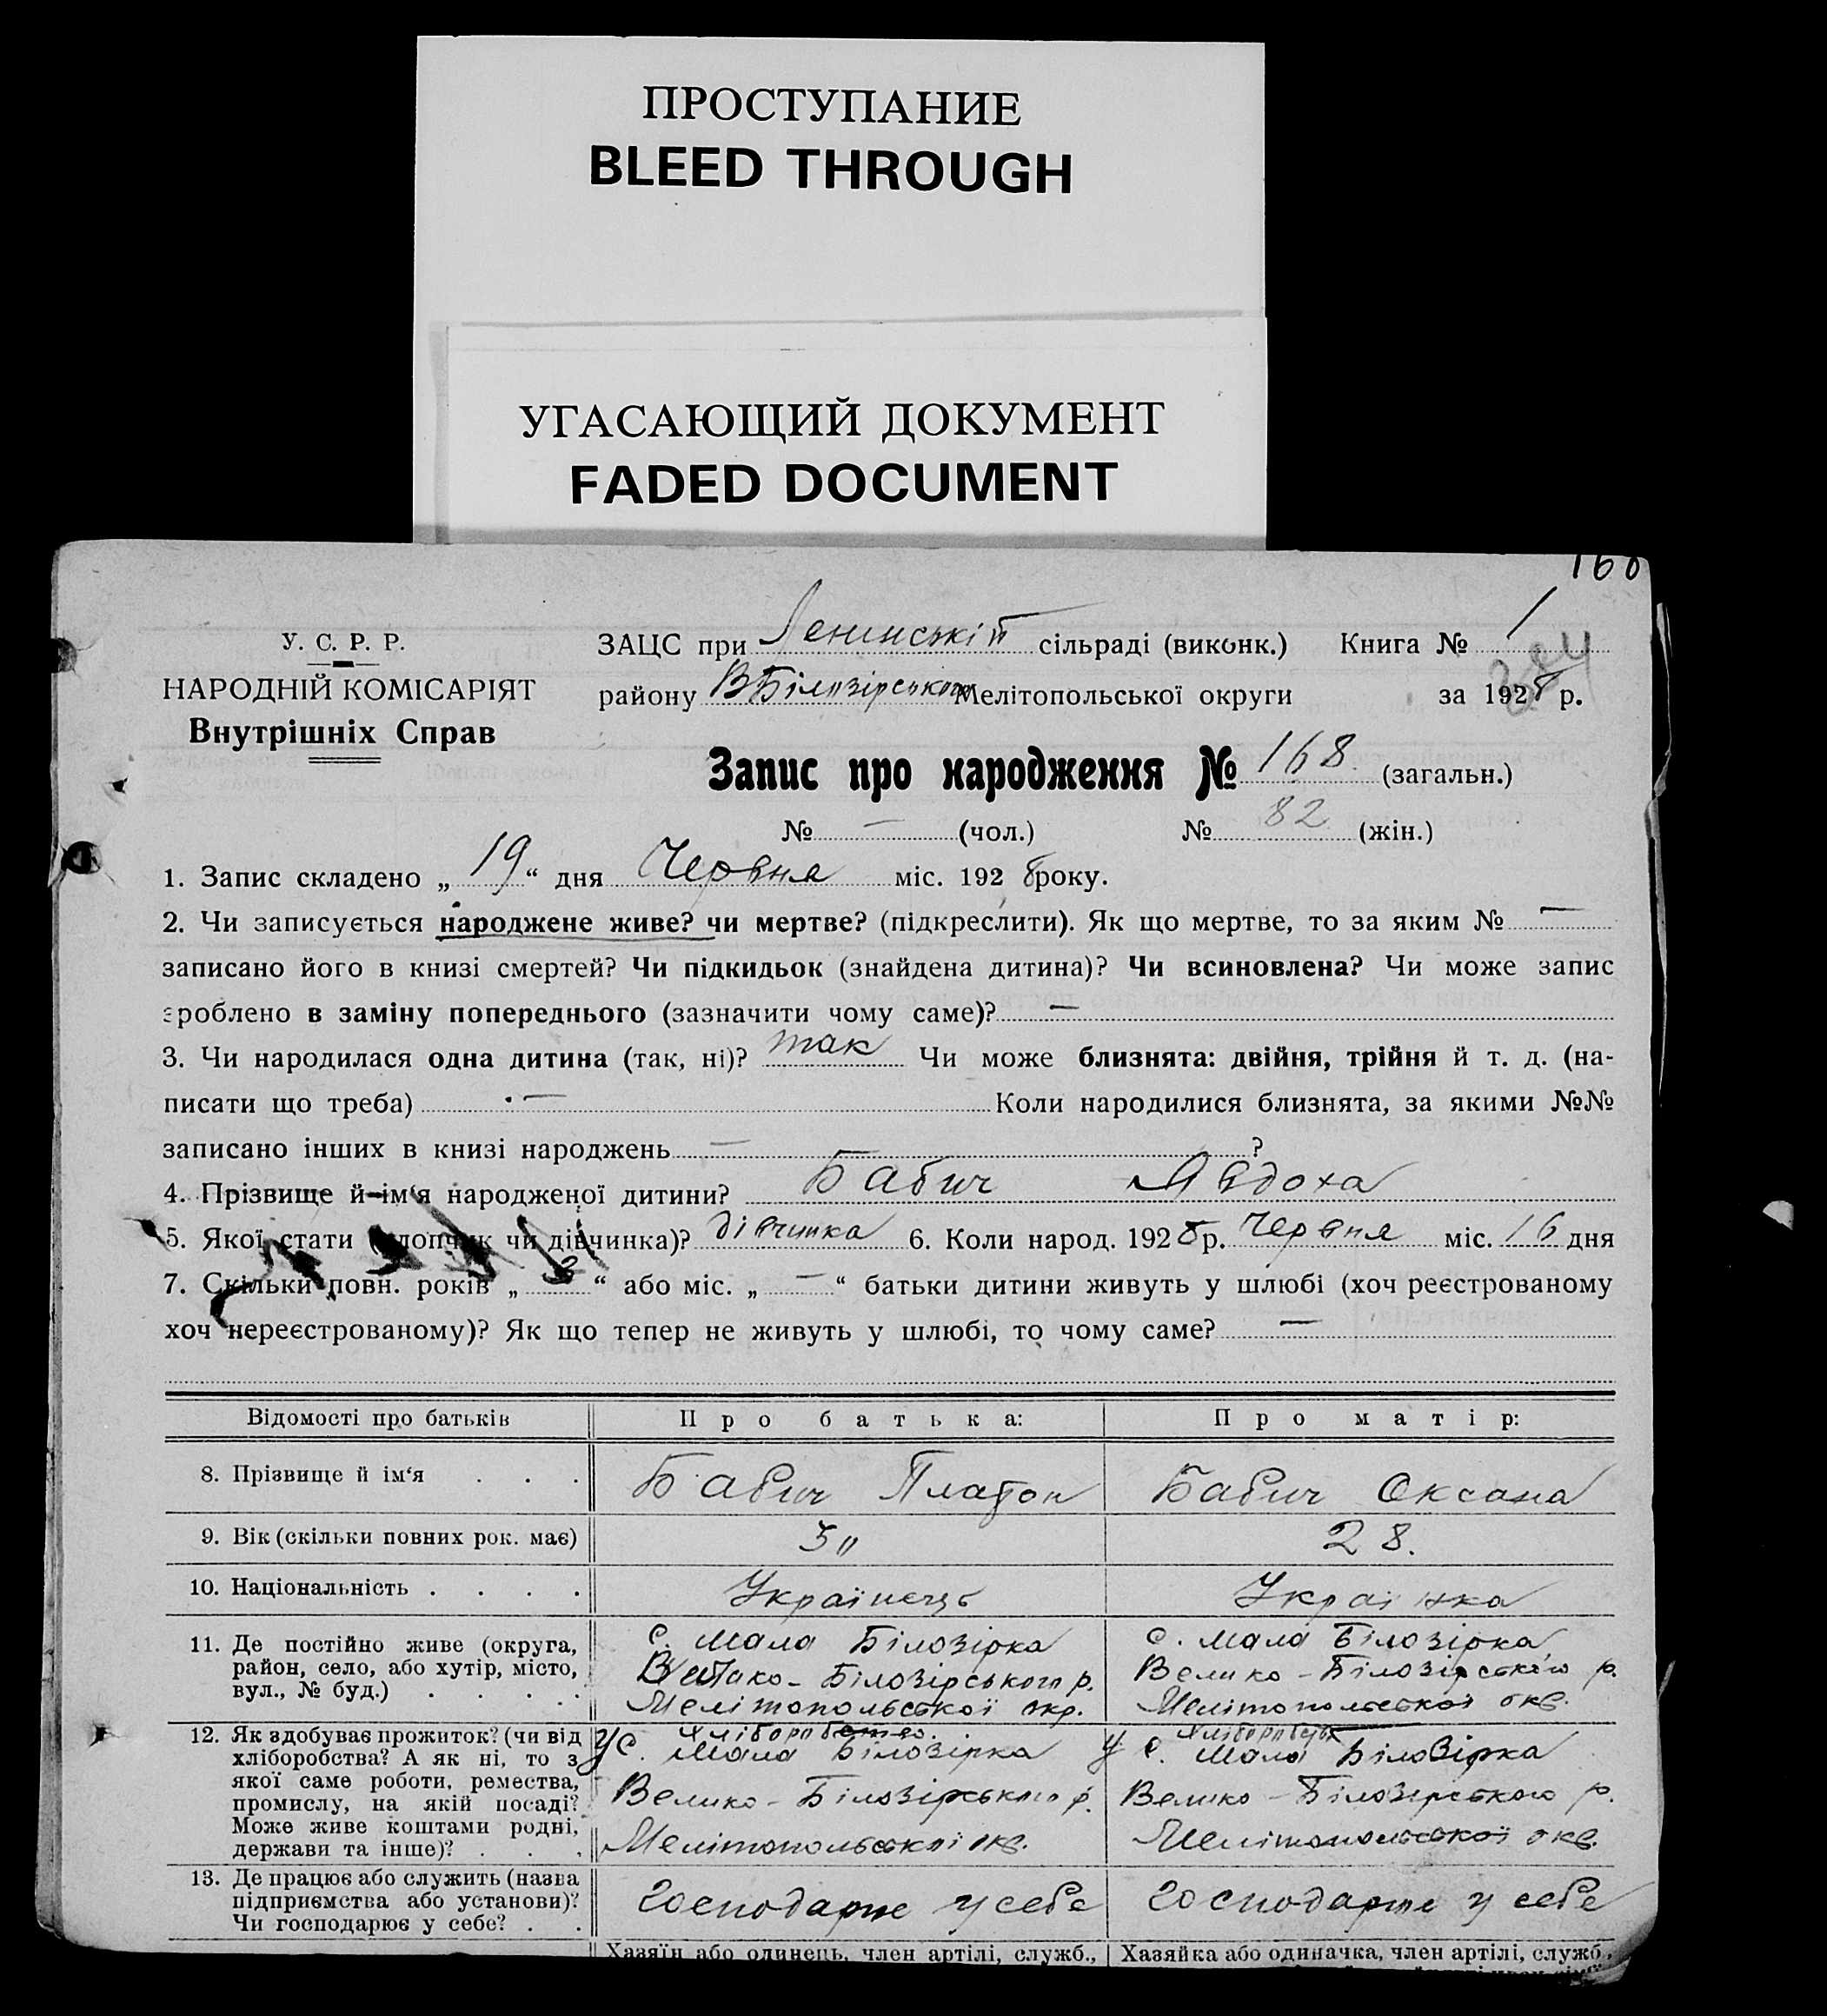 ПРОСТУПАНИЕ
BLEED THROUGH
УГАСАЮЩИЙ ДОКУМЕНТ
FADED DOCUMENT
168
У. С. Р. Р.
НАРОДНІЙ КОМІСАРІЯТ
Внутрішніх Справ
ЗАЦС при Ленинській сільраді (виконк.) Книга № 1
384
району ВБілозірського Мелітопольської округи за 1928 р.
Запис про народження № 168 (загальн.)
№ — (чол.) № 82 (жін.)
1. Запис складено „ 19 “ дня Червня міс. 192 8 року.
2. Чи записується народжене живе? чи мертве? (підкреслити). Як що мертве, то за яким № —
записано його в книзі смертей? Чи підкидьок (знайдена дитина)? Чи всиновлена? Чи може запис
зроблено в заміну попереднього (зазначити чому саме)? —
3. Чи народилася одна дитина (так, ні)? так Чи може близнята: двійня, трійня й т. д. (на-
писати що треба) — Коли народилися близнята, за якими №№
записано інших в книзі народжень — ?
4. Прізвище й ім‘я народженої дитини? Бабич Явдоха
5. Якої стати (хлопчик чи дівчинка)? дівчинка 6. Коли народ. 1928 р. Червня міс. 16 дня
7. Скільки повн. років „ 3 “ або міс. „ — “ батьки дитини живуть у шлюбі (хоч реєстрованому
хоч нереєстрованому)? Як що тепер не живуть у шлюбі, то чому саме? —
Відомості про батьків Про батька: Про матір:
8. Прізвище й ім‘я . . . Бабич Платон Бабич Оксана
9. Вік (скільки повних рок. має) 28.
10. Національність . . . . Українець Українка
11. Де постійно живе (округа,
район, село, або хутір, місто,
вул., № буд.) . . . . .
с. Мала Білозірка
Велико-Білозірського р.
Мелітопольської окр.
с. Мала Білозірка
Велико-Білозірського р.
Мелітопольської окр.
12. Як здобуває прожиток? (чи від
хліборобства? А як ні, то з
якої саме роботи, ремества,
промислу, на якій посаді?
Може живе коштами родні,
держави та інше)? . . .
Хліборобство.
У с. Мала Білозірка
Велико-Білозірського р.
Мелітопольскої окр.
Хліборобство
У с. Мала Білозірка
Велико-Білозірського р.
Мелітопольської окр.
13. Де працює або служить (назва
підприємства або установи)?
Чи господарює у себе? . .
Господарює у себе
Господарює у себе
Хазяїн або одинець, член артілі, служб.,
Хазяйка або одиначка, член артілі, служб.,